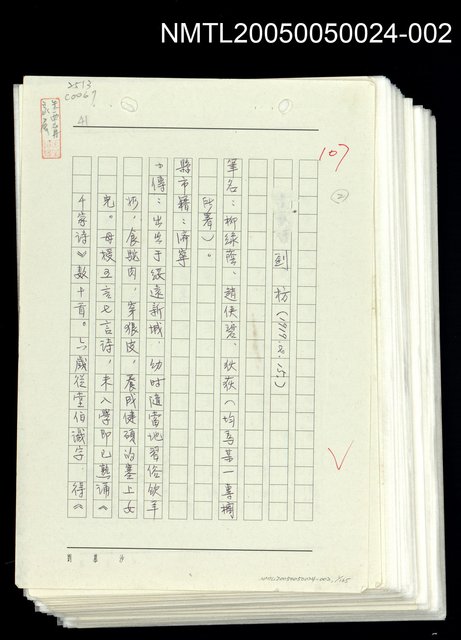 NMTL20050050024-002
2513
C0067
41
107
②
劉枋(1919.3.15.)
筆名：柳綠蔭、趙俠碧、狄荻（均為某一專欄
所署）。
縣市籍：濟寧
小傳：出生于綏遠新城，幼時隨當地習俗飲羊
奶，食駝肉，穿狼皮，養成健碩的塞上女
兒。母授五言七言詩，未入學即已熟誦《
千家詩》數十首。六歲從堂伯識字，得《
劉慕沙
NMTL20050050024-002, 1/165